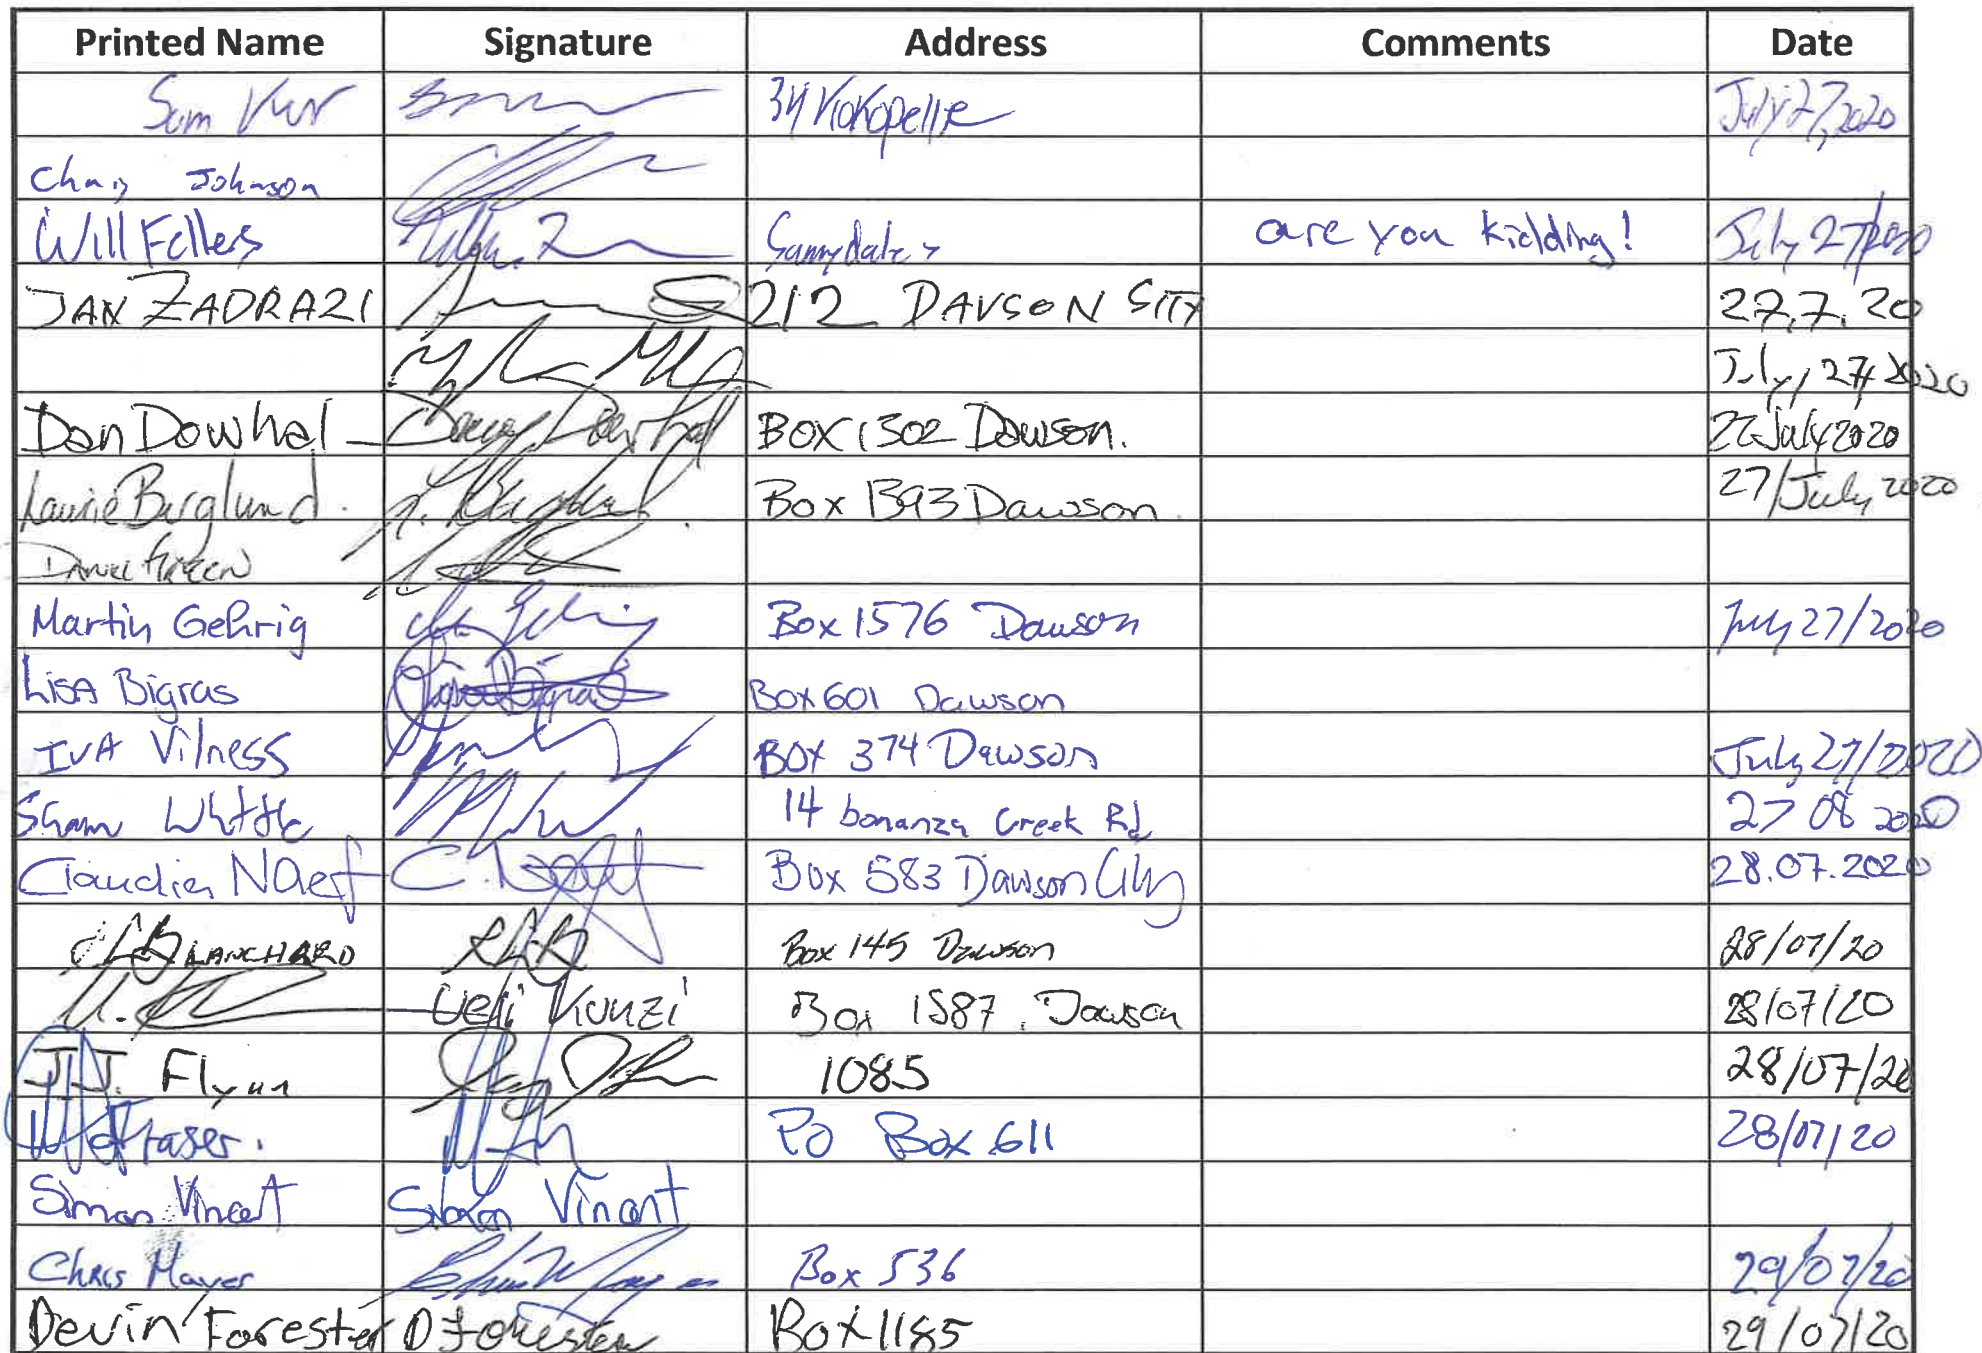 Printed Name Signature Address Comments Date
Sam 34 Kokopellie July 27, 2020
Johnson
Will Fellers Sunnydale are you kidding! July 27/2020
JAN ZADRAZI 212 DAVSON SITY 27.7.20
July, 27, 2020
Dan Dowhal Box 1302 Dawson. 27 July 2020
Laurie Burglund. Box 1393 Dawson. 27/July 2020
Daniel Green
Martin Gehrig Box 1576 Dawson July 27/2020
Lisa Bigras Lisa Bigras Box 601 Dawson
IVA Vilness BOX 374 Dawson July 27/2020
Shawn 14 bonanza Creek Rd 27 08 2020
Claudia Naef C. Naef Box 583 Dawson City 28.07.2020
BLANCHARD Box 145 Dawson 28/07/20
Ueli Kunzi Box 1587. Dawson 28/07/20
J.J. Flynn 1085 28/07/20
Fraser. PO Box 611 28/07/20
Simon Vincent Simon Vincent
Chris Mayer Box 536 29/07/20
Devin Forester D Forester Box 1185 29/07/20